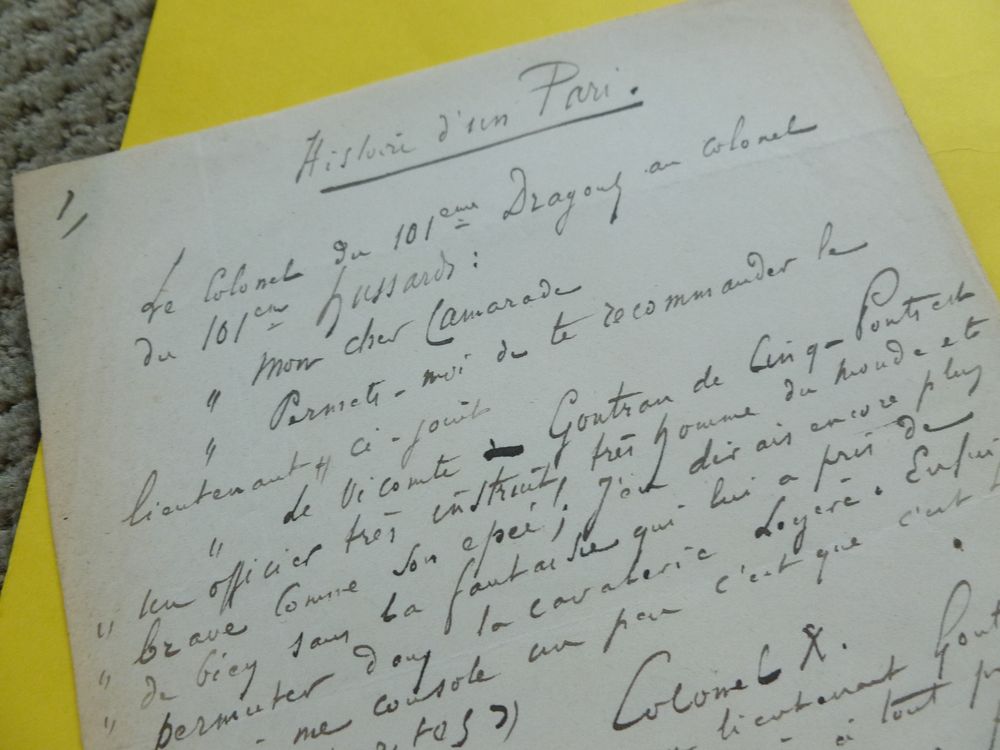 Histoire d'un Pari.
1/
Le Colonel du 101eme Dragons au colonel
du 101eme hussards:
" Mon cher Camarade
" Permets-moi de te recommander le
lieutenant ci-joint
" de Vicomte Gontran de Cinq-Ponts est
" un officier très instruit, très homme du monde et
" brave comme son epéé; j'en dirais encore plus
" de bien sans la fantaisie qui lui a pris de
" permuter dans la cavalerie Légère. Enfin
me console un peu c'est que c'est
Colonel X.
lieutenant Gont
à tout